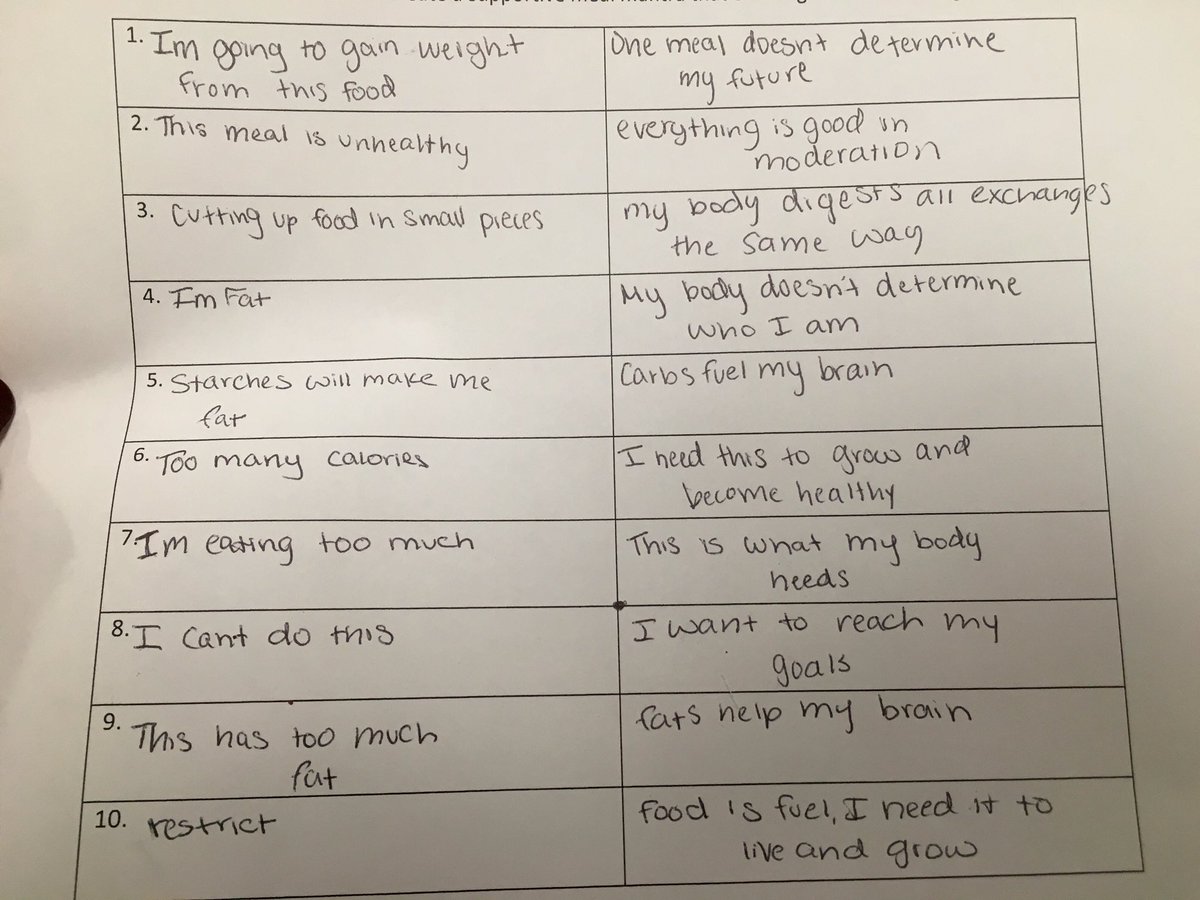 supportive meal mantra
1. Im going to gain weight
from this food
One meal doesnt determine
my future
2. This meal is unhealthy
everything is good in
moderation
3. Cutting up food in small pieces
my body digests all exchanges
the same way
4. Im Fat
My body doesn't determine
who I am
5. Starches will make me
fat
Carbs fuel my brain
6. Too many calories
I need this to grow and
become healthy
7. Im eating too much
This is what my body
needs
8. I cant do this
I want to reach my
goals
9. This has too much
fat
fats help my brain
10. restrict
food is fuel, I need it to
live and grow